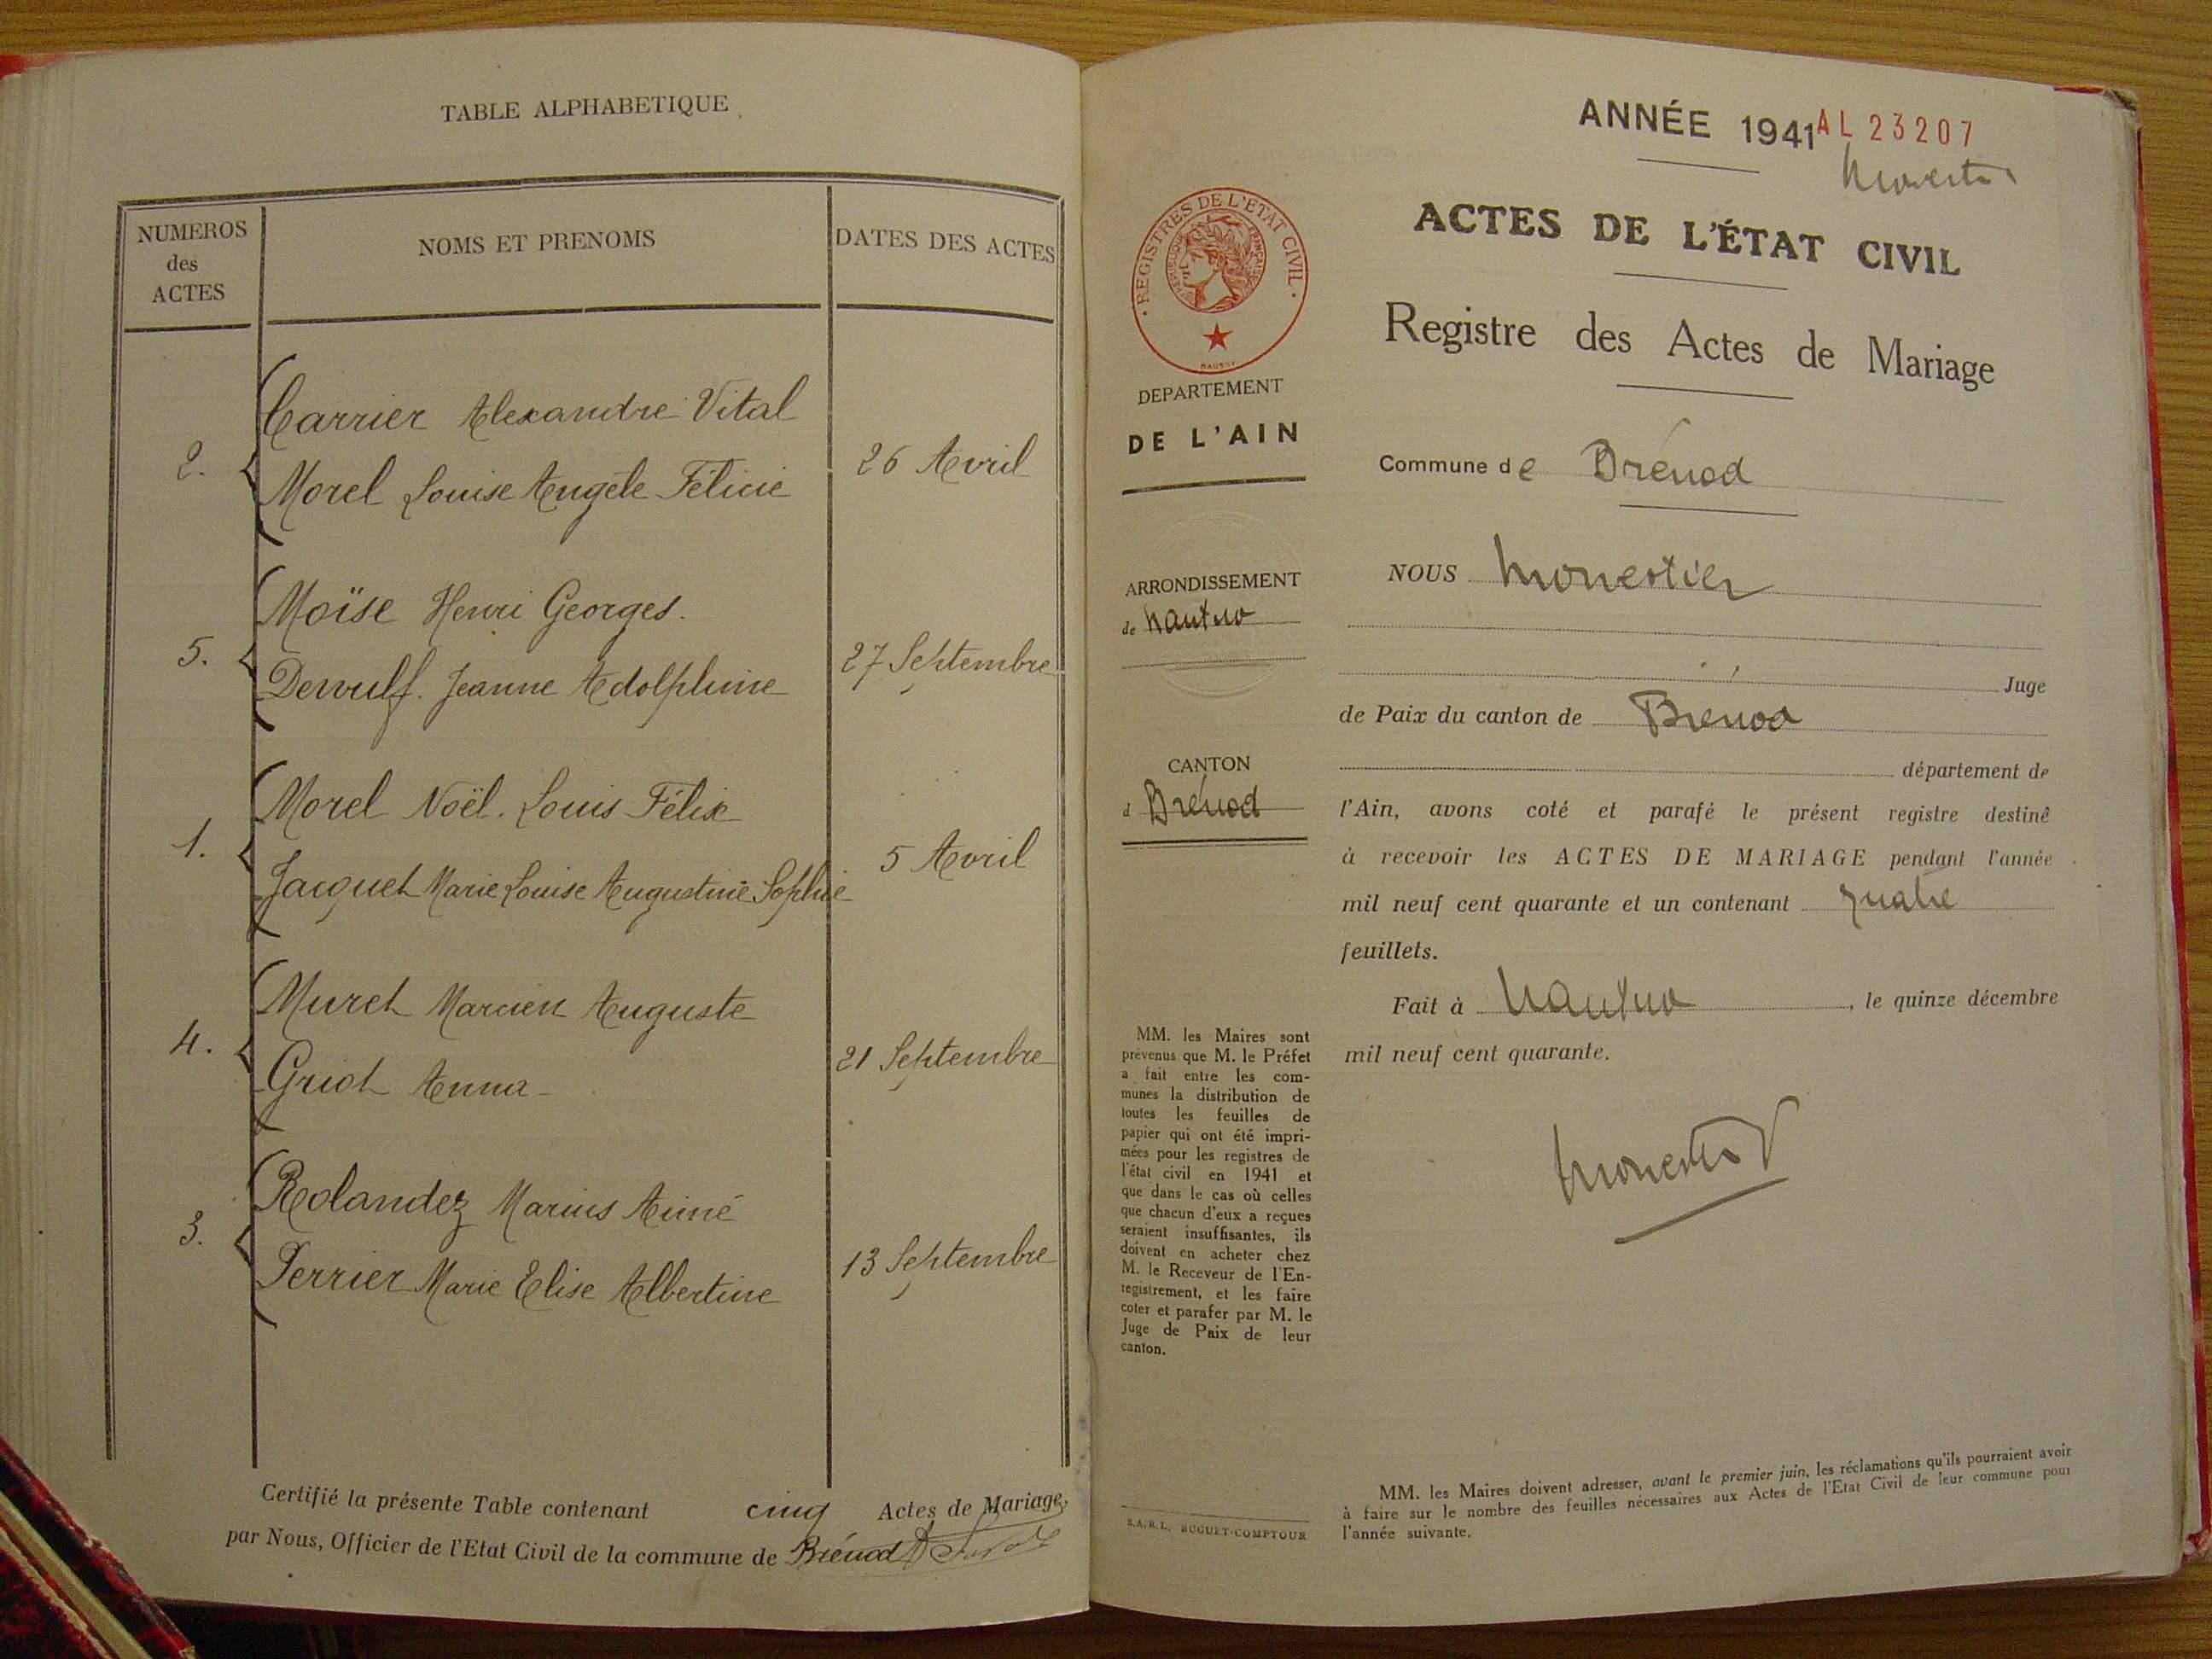 TABLE ALPHABETIQUE
NUMEROS
des
ACTES
NOMS ET PRENOMS
DATES DES ACTES
Carrier Alexandre Vital
2.
26 Avril
Morel Louise Angèle Félicie
Moïse Henri Georges.
5.
27 Septembre
Dewulf. Jeanne Adolphine
Morel Noël. Louis Félix
1.
5 Avril
Jacquet Marie Louise Augustine Sophie
Muret Marcien Auguste
4.
21 Septembre
Griot Anna
Rolandez Marius Aimé
3.
13 Septembre
Perrier Marie Elise Albertine
Certifié la présente Table contenant cinq Actes de Mariage,
par Nous, Officier de l'Etat Civil de la commune de Brénod
ANNÉE 1941
AL 23207
ACTES DE L'ÉTAT CIVIL
Registre des Actes de Mariage
REGISTRES DE L'ETAT CIVIL
REPUBLIQUE FRANÇAISE
DEPARTEMENT
DE L'AIN
ARRONDISSEMENT
de Nantua
CANTON
d Brénod
MM. les Maires sont
prévenus que M. le Préfet
a fait entre les com-
munes la distribution de
toutes les feuilles de
papier qui ont été impri-
mées pour les registres de
l'état civil en 1941 et
que dans le cas où celles
que chacun d'eux a reçues
seraient insuffisantes, ils
doivent en acheter chez
M. le Receveur de l'En-
registrement, et les faire
coter et parafer par M. le
Juge de Paix de leur
canton.
S.A.R.L. BUGUET-COMPTOUR
Commune de Brénod
NOUS Monestier
Juge
de Paix du canton de Brenod
département de
l'Ain, avons coté et parafé le présent registre destiné
à recevoir les ACTES DE MARIAGE pendant l'année
mil neuf cent quarante et un contenant quatre
feuillets.
Fait à Nantua, le quinze décembre
mil neuf cent quarante.
Monestier
MM. les Maires doivent adresser, avant le premier juin, les réclamations qu'ils pourraient avoir
à faire sur le nombre des feuilles nécessaires aux Actes de l'Etat Civil de leur commune pour
l'année suivante.